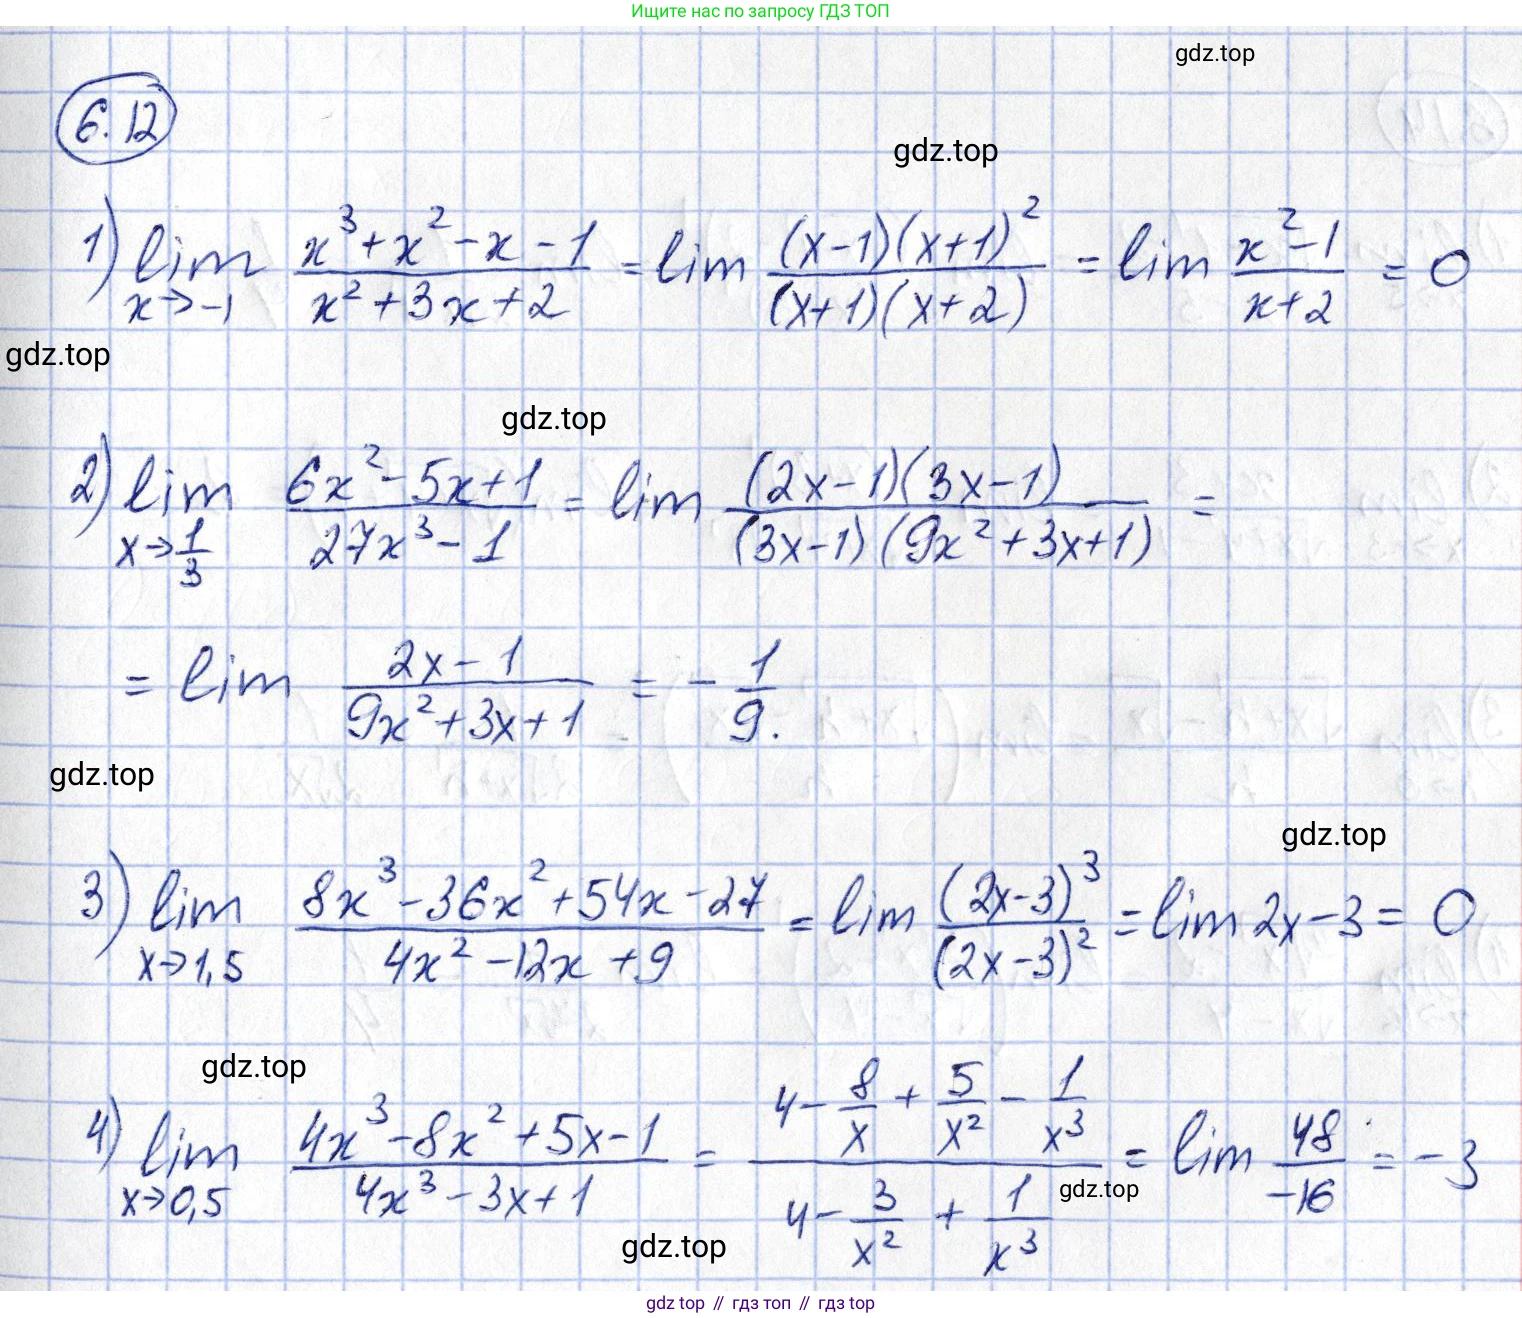 Ищите нас по запросу ГДЗ ТОП
gdz.top
6.12
gdz.top
1) lim x→-1 (x³+x²-x-1)/(x²+3x+2) = lim ((x-1)(x+1)²)/((x+1)(x+2)) = lim (x²-1)/(x+2) = 0
gdz.top
gdz.top
2) lim x→1/3 (6x²-5x+1)/(27x³-1) = lim ((2x-1)(3x-1))/((3x-1)(9x²+3x+1)) =
= lim (2x-1)/(9x²+3x+1) = -1/9.
gdz.top
gdz.top
3) lim x→1,5 (8x³-36x²+54x-27)/(4x²-12x+9) = lim (2x-3)³/(2x-3)² = lim 2x-3 = 0
gdz.top
4) lim x→0,5 (4x³-8x²+5x-1)/(4x³-3x+1) = (4-8/x+5/x²-1/x³)/(4-3/x²+1/x³) = lim 48/-16 = -3
gdz.top
gdz.top
gdz top // гдз топ // гдз top